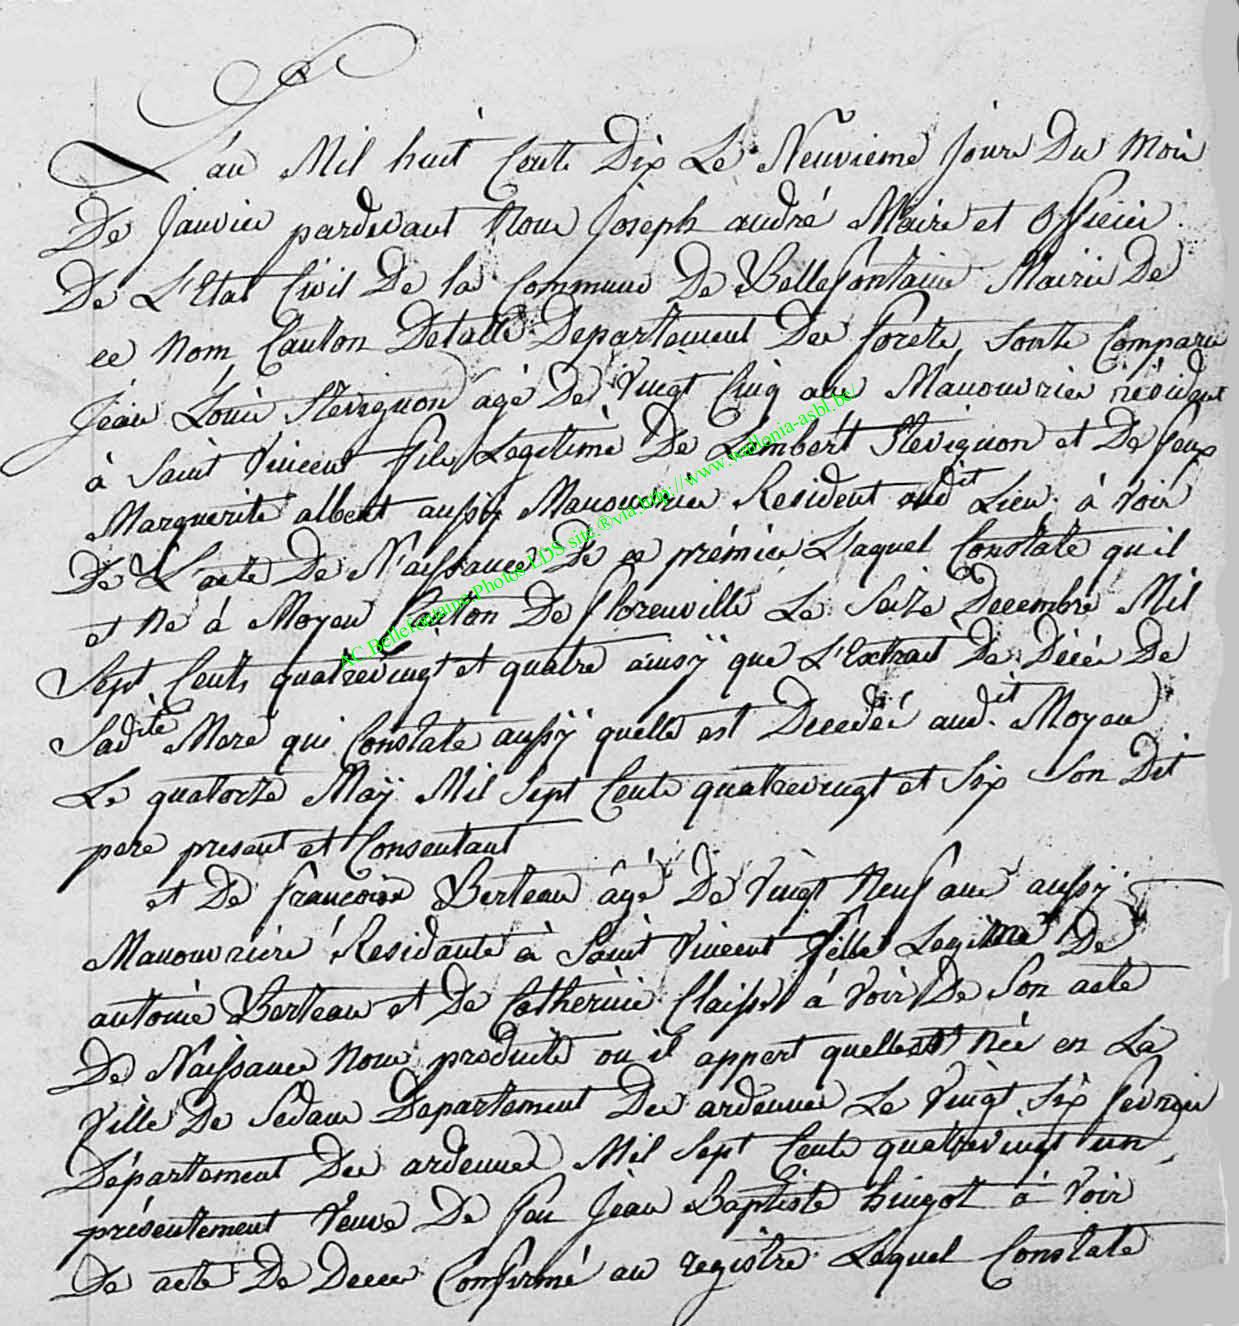 L'an Mil huit Cents Dix Le Neuvieme Jour Du Mois
De Janvier pardevant Nous Joseph andré Maire et Officier
De L'Etat Civil De la Commune De Bellefontaine Mairie De
ce Nom Canton Detalle Departement Des forets sonts Comparu
Jéan Louis Stevignon agé De Vingt Cinq ans Manouvrier résident
à Saint Vincent fils Legitime De Lambert Stevignon et De feux
Marguerite albert aussy Manouvrier Resident audit Lieu à Voir
De L'acte De Naissance De ce prémier Laquel Constate qu'il
et Né à Moyen Canton De florenville Le Seize Decembre Mil
Sept Cents quatrevingt et quatre ainsy que L'Extrait De Décés De
Sadite Mere qui Constate aussy quelle est Decedéé audit Moyen
Le quatorze Maÿ Mil Sept Cents quatrevingt et Six Son Dit
pere present et Consentant
et De francoise Berteau âgé De Vingt Neuf ans aussy
Manouvriere Residante à Saint Vincent fille Legitime De
antoine Berteau et De Catherine Claisse à Voir De Son acte
De Naissance Nous produite ou il appert quelle est Née en La
Ville De Sedan Departement Des ardennes Le Vingt Six fevrier
Département Des ardennes Mil Sept Cents quatrevingt un,
présentement Veuve De feu Jéan Baptiste hingot à Voir
De acte De Deces Confirmé au registre Lequel Constate
AC Bellefontaine Photos LDS sitz ®via http://www.wallonia-asbl.be/